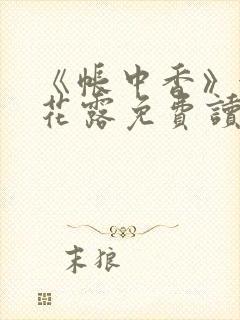 《帳中香》
花露免費讀
末狼